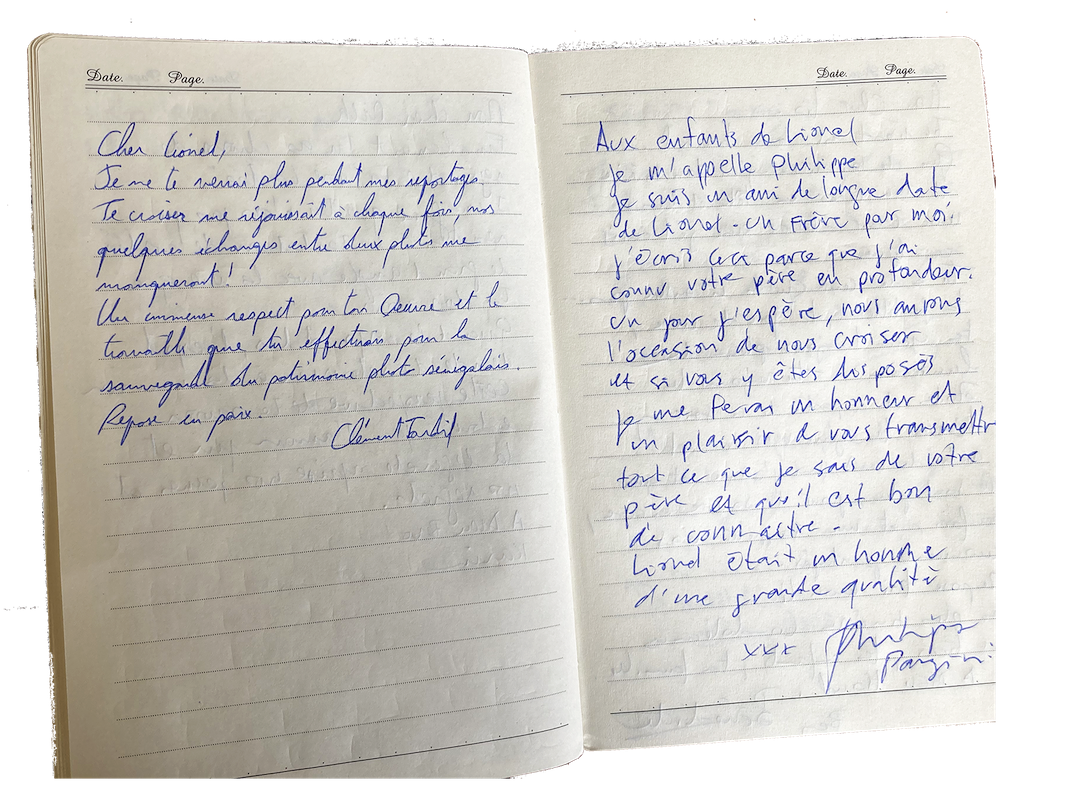 Date. Page.
Cher Lionel,
Je ne te verrai plus pendant mes reportages.
Te croiser me réjouissait à chaque fois, nos
quelques échanges entre deux photos me
manqueront !
Un immense respect pour ton Oeuvre et le
travail que tu effectuais pour la
sauvegarde du patrimoine photo sénégalais.
Repose en paix.
Clément Tardif
Date. Page.
Aux enfants de Lionel
Je m'appelle Philippe
Je suis un ami de longue date
de Lionel - un Frère par moi.
j'écris ceci parce que j'ai
connu votre père en profondeur.
un jour j'espère, nous aurons
l'occasion de nous croiser
et si vous y êtes disposés
Je me ferai un honneur et
un plaisir à vous transmettre
tout ce que je sais de votre
père et qu'il est bon
de connaître.
Lionel était un homme
d'une grande qualité
xxx Philippe